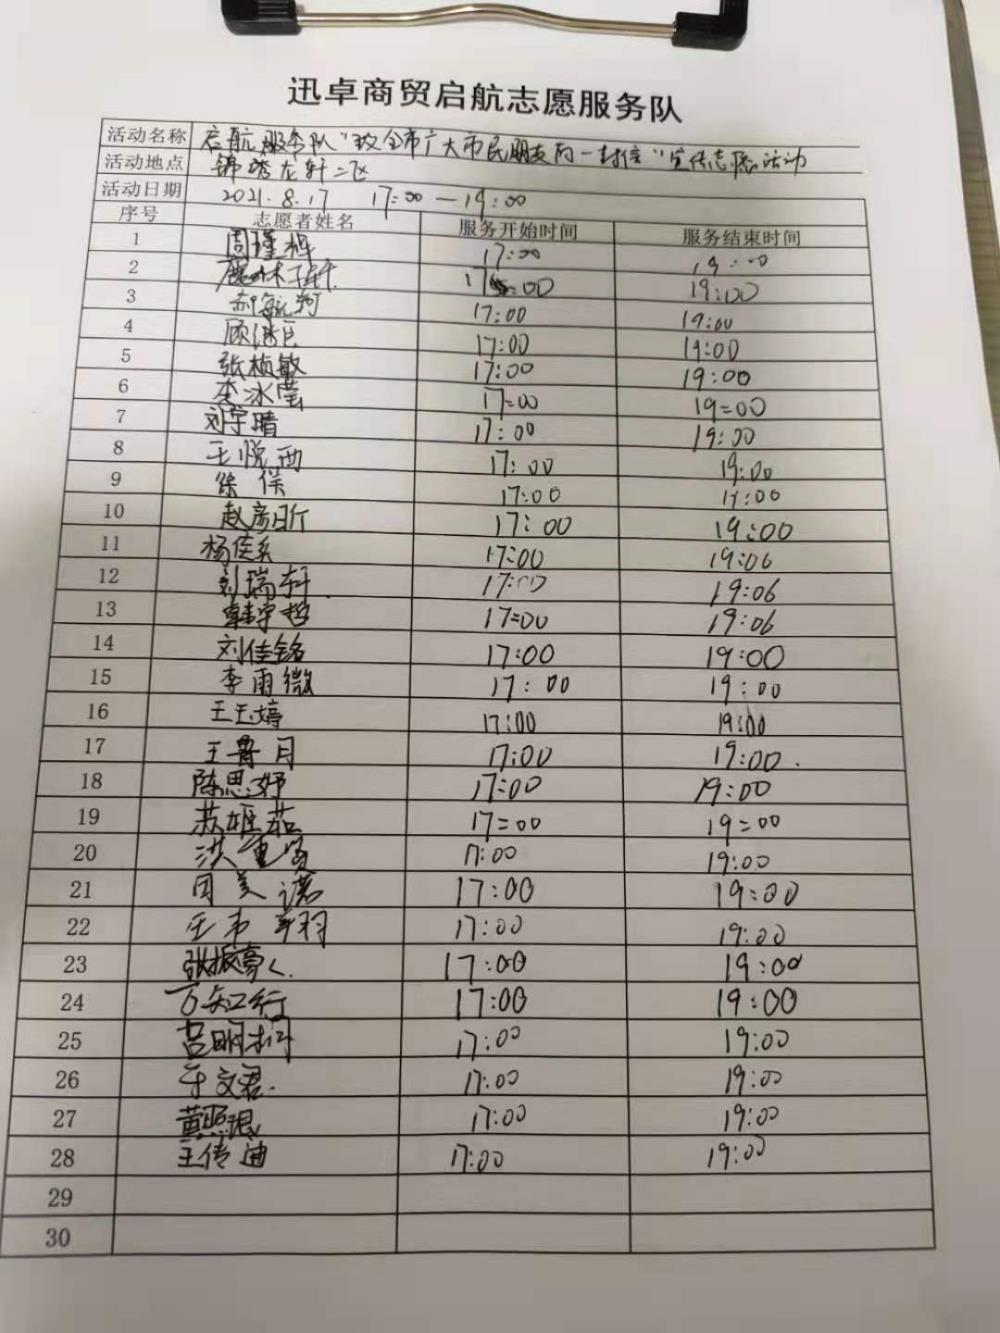 迅卓商贸启航志愿服务队
活动名称 启航服务队"致全市广大市民朋友的一封信"宣传志愿活动
活动地点 锦绣龙轩二区
活动日期 2021.8.17 17:00—19:00
序号 志愿者姓名 服务开始时间 服务结束时间
1 周瑾辉 17:00 19:00
2 17:00 19:00
3 17:00 19:00
4 17:00 19:00
5 张桢敏 17:00 19:00
6 李冰莹 17=00 19=00
7 刘宇晴 17:00 19:00
8 王悦西 17:00 19:00
9 徐 17:00 19:00
10 赵彦昕 17:00 19:00
11 杨 17:00 19:06
12 刘瑞轩 17:00 19:06
13 韩宇哲 17=00 19:06
14 刘佳铭 17:00 19:00
15 李雨微 17:00 19:00
16 王玉婷 17:00 19:00
17 王鲁月 17:00 19:00.
18 陈思妤 17:00 19:00
19 苏 茹 17=00 19=00
20 洪 17:00 19:00
21 周美诺 17:00 19:00
22 17:00 19:00
23 张振豪 17:00 19:00
24 万知行 17:00 19:00
25 吕明 17:00 19:00
26 于文君. 17:00 19:00
27 黄照 17:00 19:00
28 王传迪 17:00 19:00
29
30